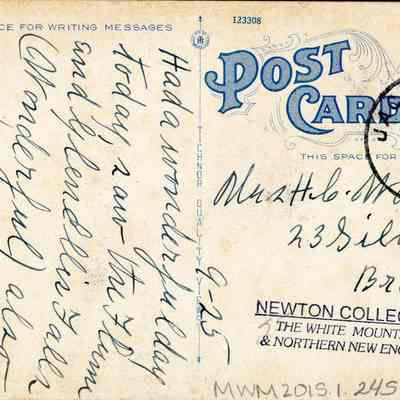 CE FOR WRITING MESSAGES
9-25
Had a wonderful day
today, saw the Flume
and Glen Ellis Falls
(Wonderful) also
TICHNOR QUALITY VIEWS
123308
POST
CARD
THIS SPACE FOR
Mrs H. C.
23
NEWTON COLLEC
THE WHITE MOUNT
& NORTHERN NEW ENG
MWM2015.1.245